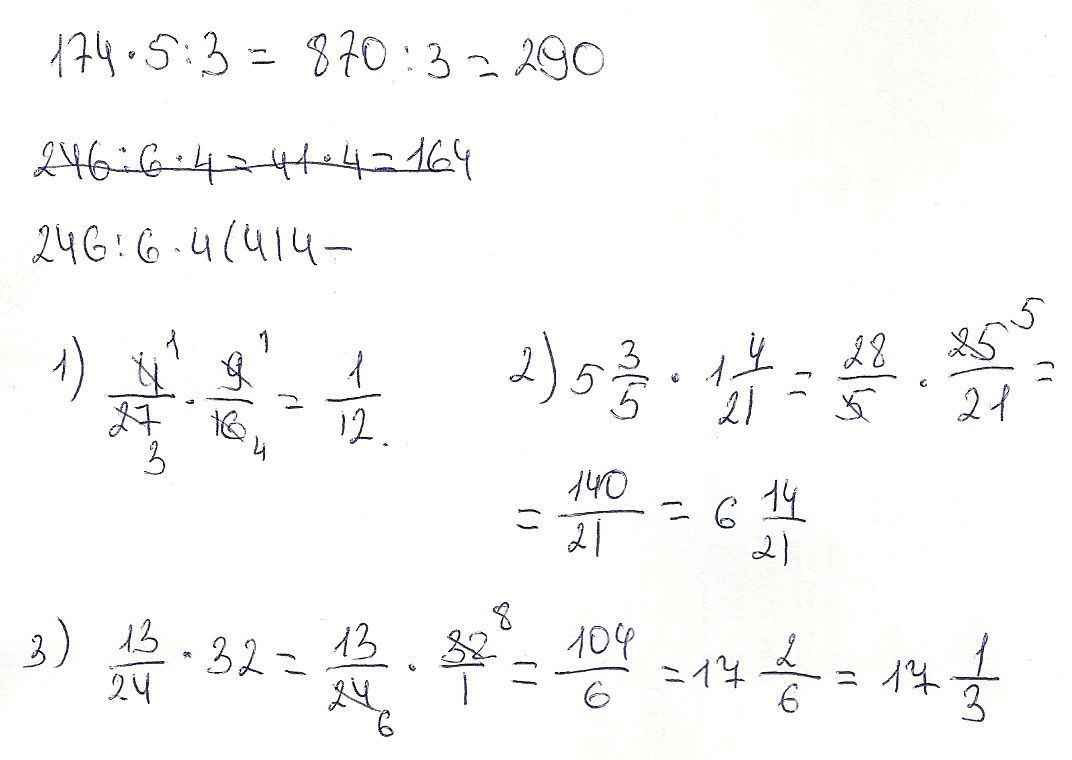 174 · 5 : 3 = 870 : 3 = 290
246 : 6 · 4 = 41 · 4 = 164
246 : 6 · 4 ( 414 -
1) 4/27 · 9/16 = 1/12. 1 1 3 4
2) 5 3/5 · 1 4/21 = 28/5 · 25/21 = 5
= 140/21 = 6 14/21
3) 13/24 · 32 = 13/24 · 32/1 = 104/6 = 17 2/6 = 17 1/3 8 6